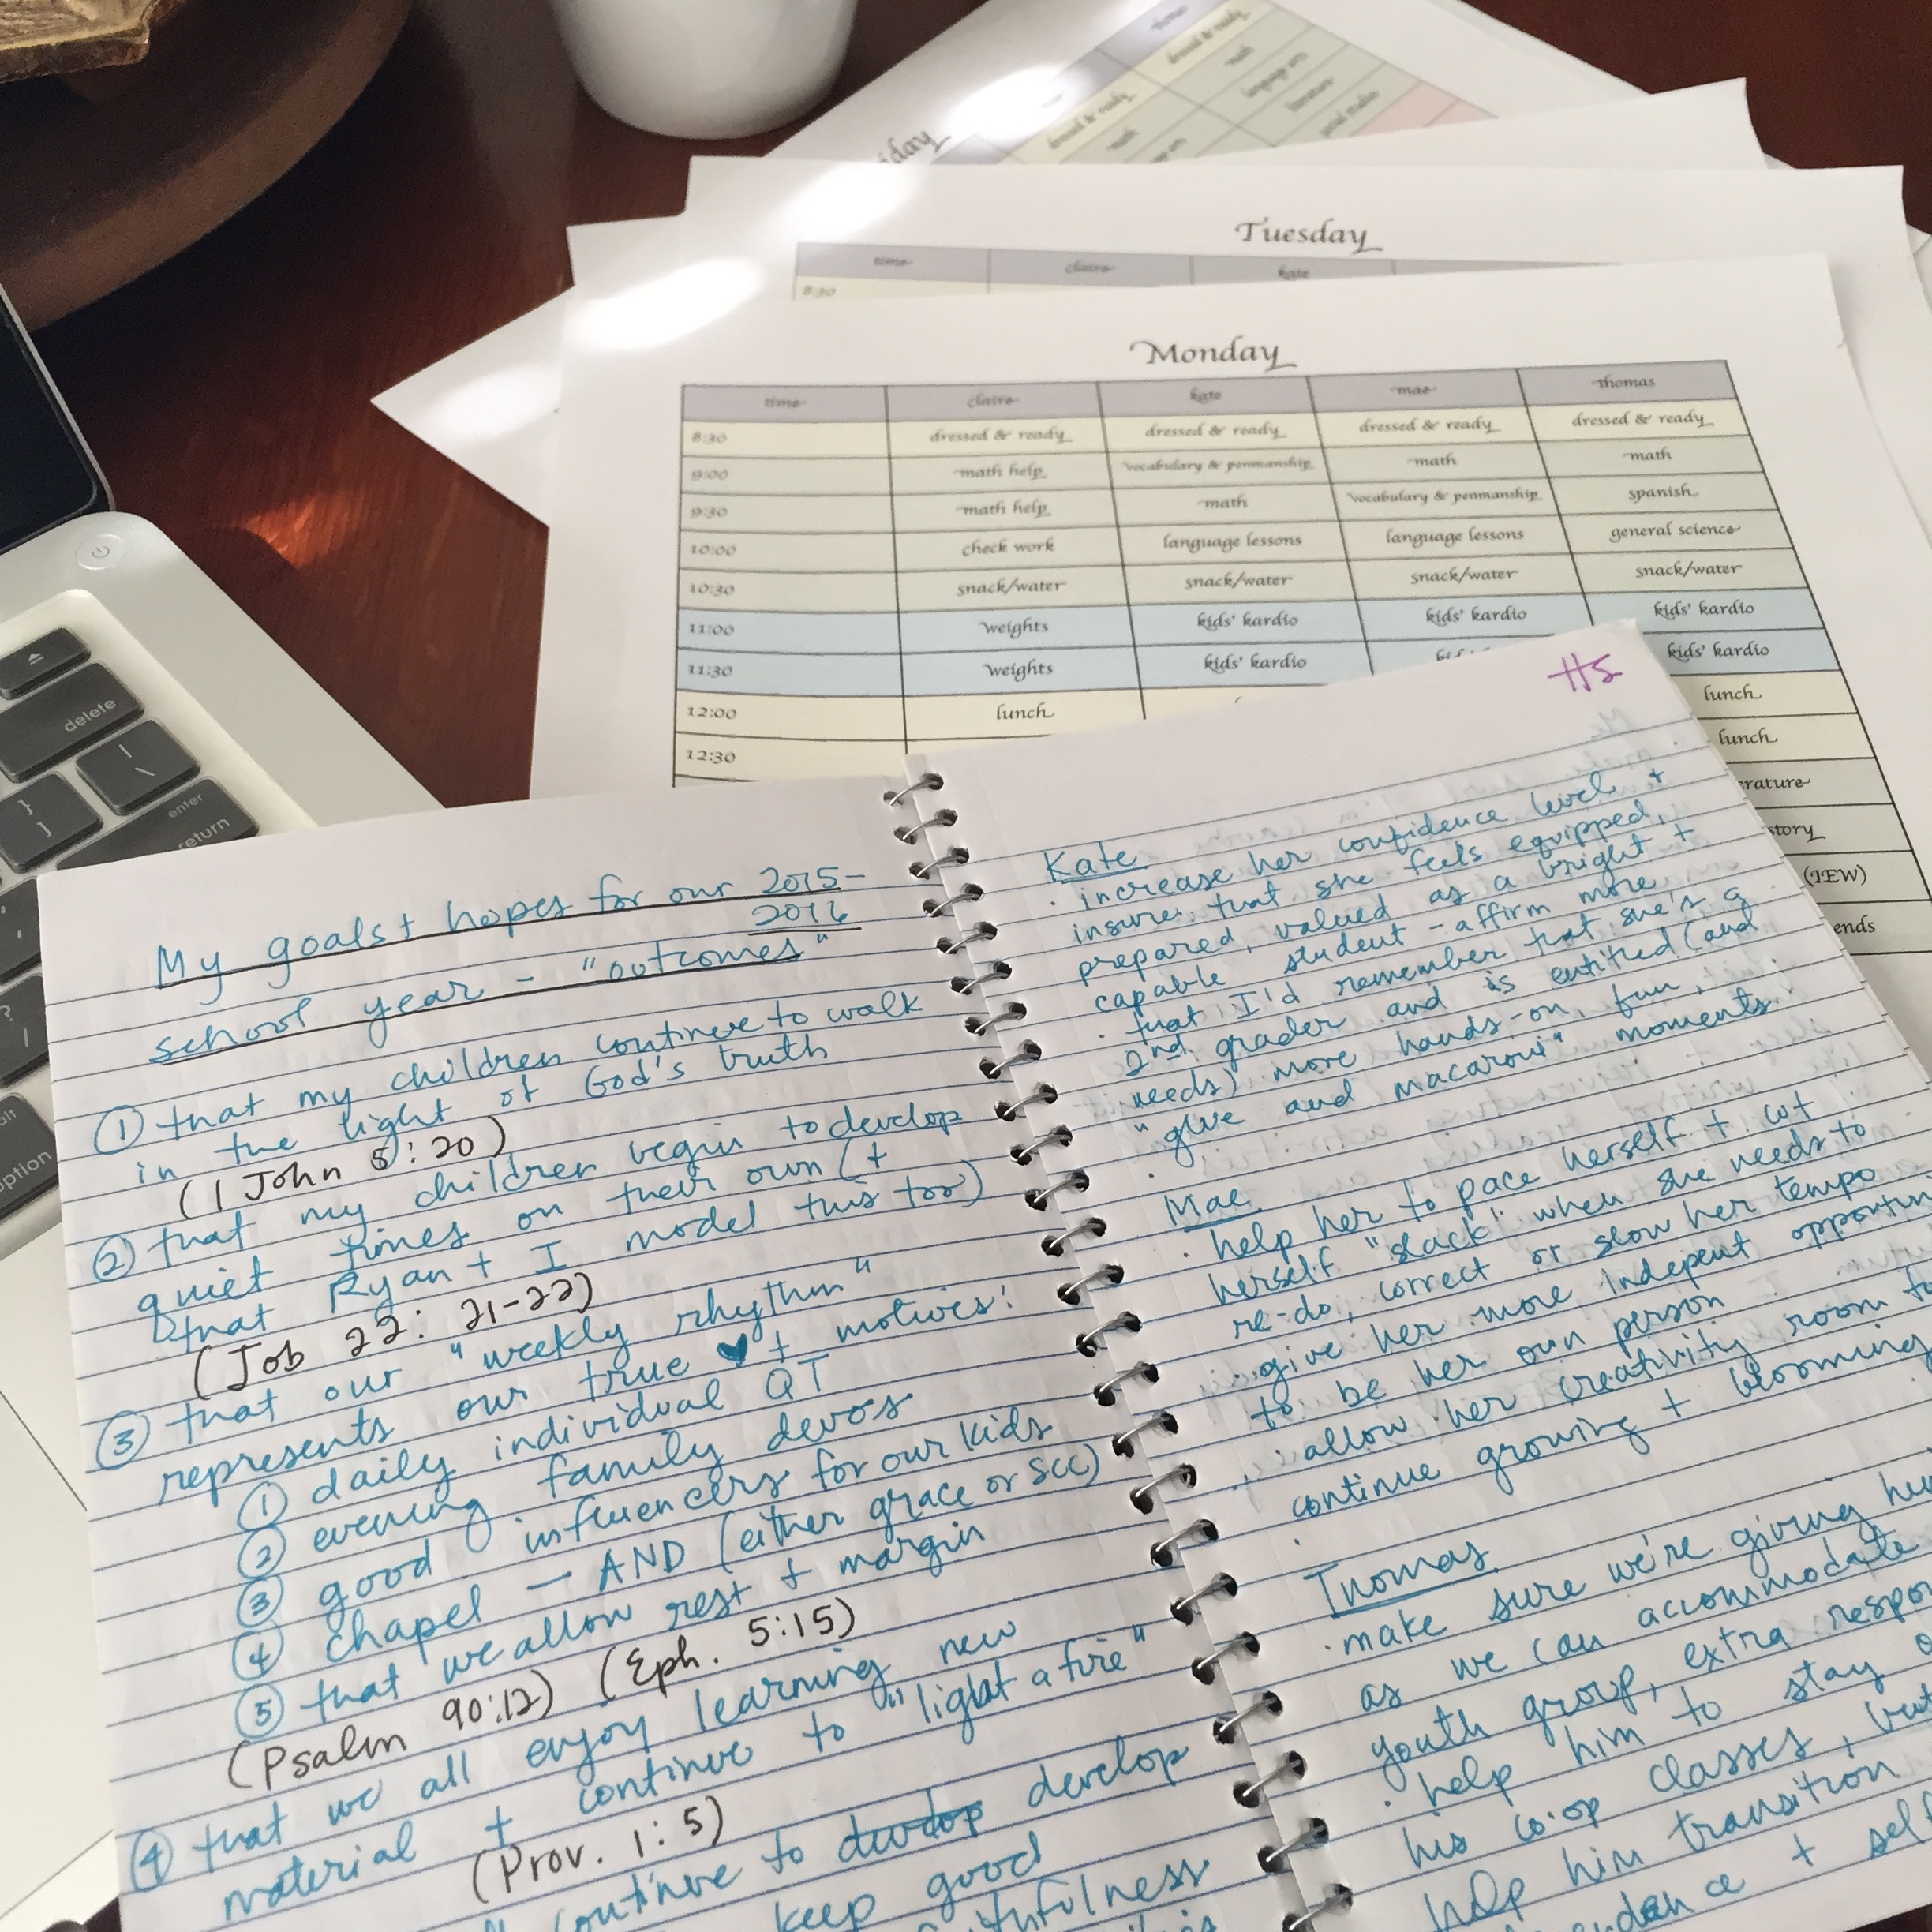 thomas
dressed & ready
math
language arts
literature
social studies
dressed & ready
math
Tuesday
time claire kate
8:30
Monday
time claire kate mae thomas
8:30 dressed & ready dressed & ready dressed & ready dressed & ready
9:00 math help vocabulary & penmanship math math
9:30 math help math vocabulary & penmanship spanish
10:00 check work language lessons language lessons general science
10:30 snack/water snack/water snack/water snack/water
11:00 weights kids' kardio kids' kardio kids' kardio
11:30 weights kids' kardio kids' kardio
12:00 lunch lunch
12:30 lunch
erature
story
(IEW)
ends
delete
enter
return
option
My goals + hopes for our 2015-
2016
school year - "outcomes"
① that my children continue to walk
in the light of God's truth
(1 John 5:20)
② that my children begin to develop
quiet times on their own (+
that Ryan + I model this too)
(Job 22: 21-22)
③ that our "weekly rhythm"
represents our true ♥ + motives:
① daily individual QT
② evening family devos
③ good influencers for our kids
④ chapel - AND (either grace or SCC)
⑤ that we allow rest + margin
(Psalm 90:12) (Eph. 5:15)
④ that we all enjoy learning new
material + continue to "light a fire"
(Prov. 1:5)
continue to develop develop
keep good
HS
Kate
· increase her confidence level +
insure that she feels equipped,
prepared, valued as a bright +
capable student - affirm more
· that I'd remember that she's a
2nd grader and is entitled (and
needs) more hands-on, fun,
"glue and macaroni" moments
Mae
· help her to pace herself + cut
herself "slack" when she needs to
re-do, correct or slow her tempo
· give her more indepent opportun
to be her own person
· allow her creativity room to
continue growing + blooming
Thomas
· make sure we're giving
as we can accommodate
youth group, extra respo
· help him to stay
his co-op classes, but
help him transition
+ self